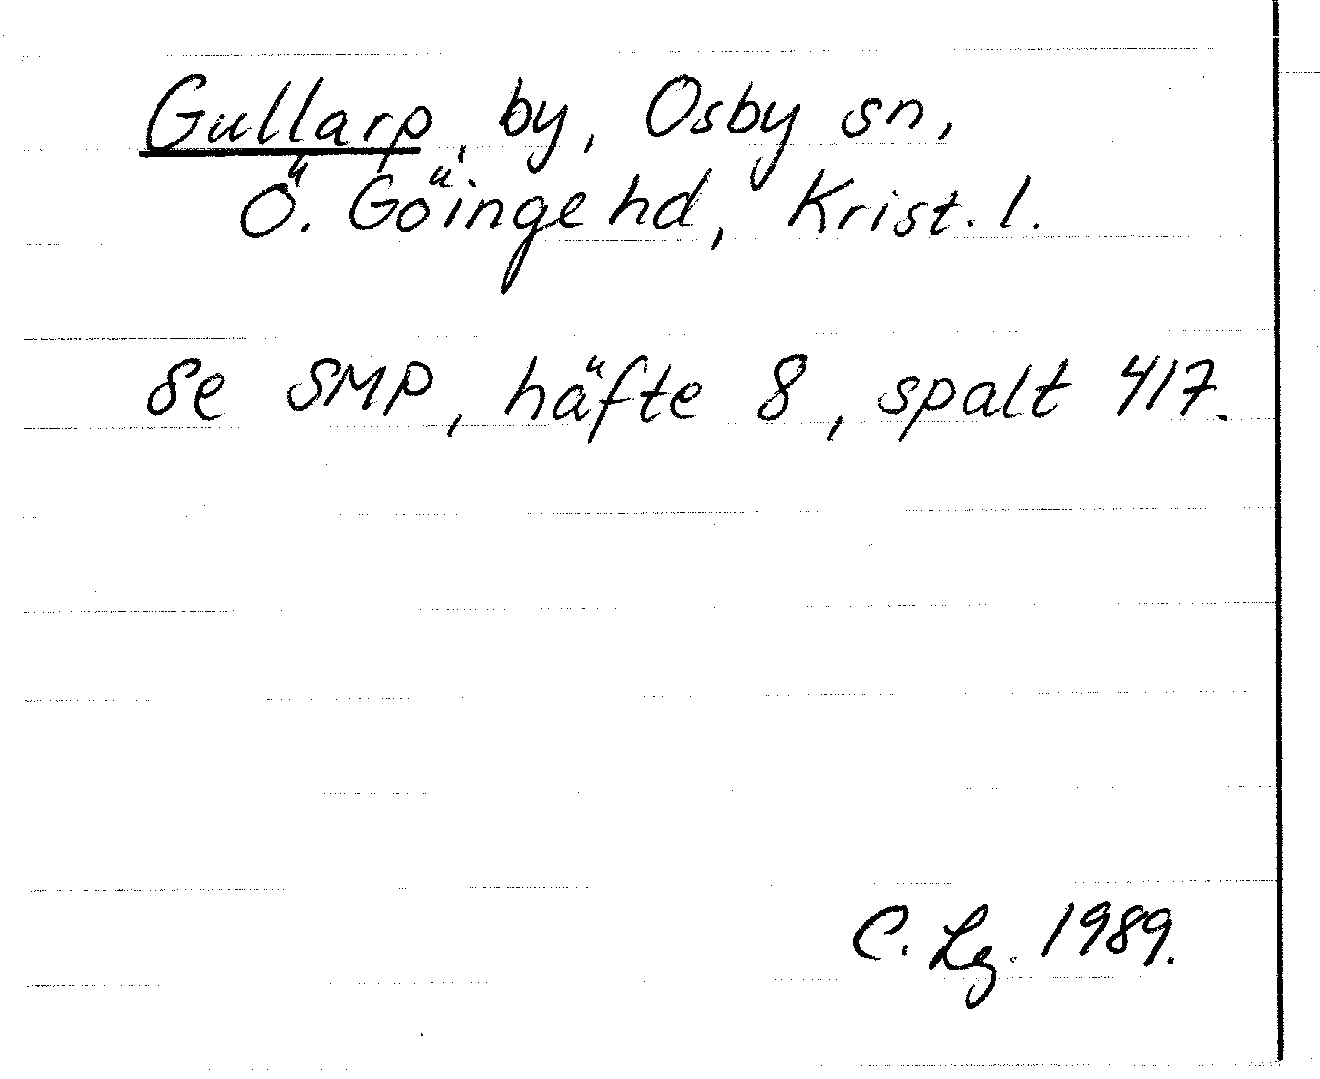 Gullarp, by, Osby sn,
Ö. Göinge hd, Krist. l.
Se SMP, häfte 8, spalt 417.
C. Lg. 1989.